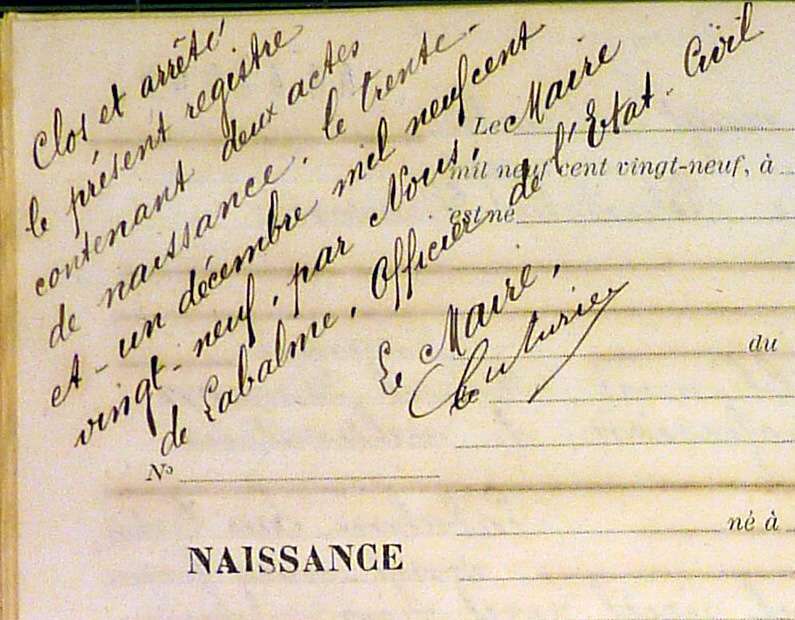 Clos et arrêté
le présent registre
contenant deux actes
de naissance, le trente-
et-un décembre mil neufcent
vingt-neuf, par Nous, Maire
de Labalme, Officier de l'Etat-Civil
Le Maire,
Le
mil neuf cent vingt-neuf, à
est né
du
né à
No
NAISSANCE